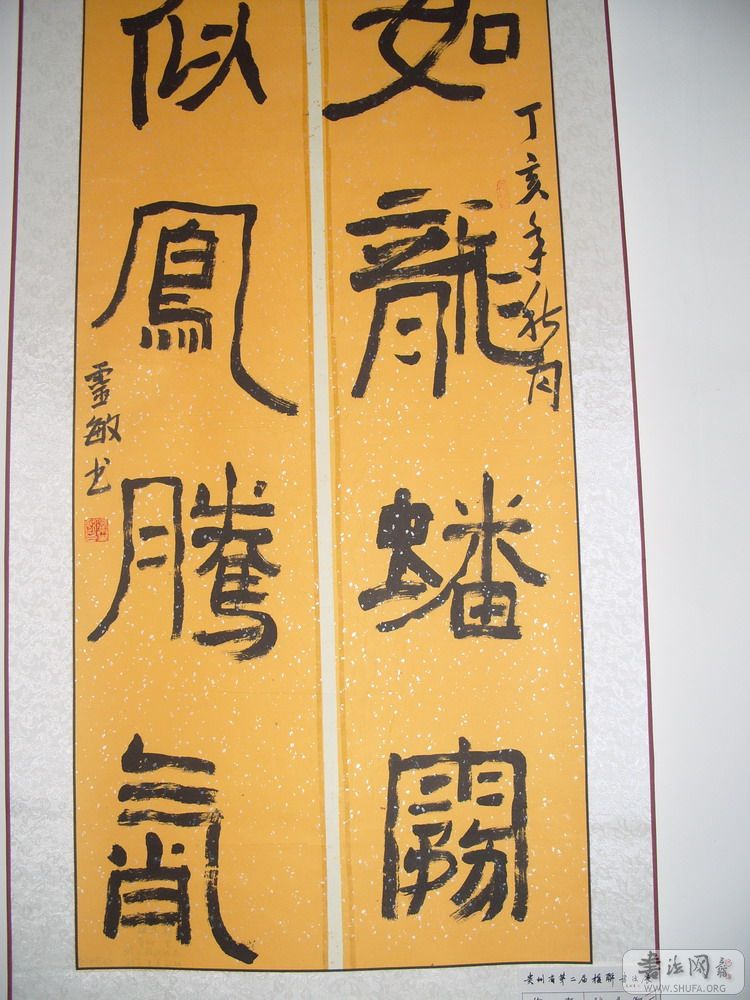 如龍蟠霧
丁亥年秋月
似鳳騰
靈敏书
贵州省第二届楹联书法展
書法网
WWW.SHUFA.ORG